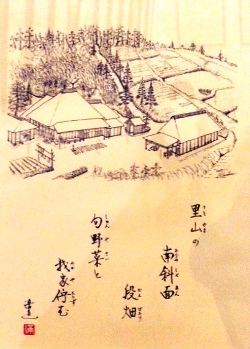 里山の
南斜面
段畑
旬野菜と
我家佇む